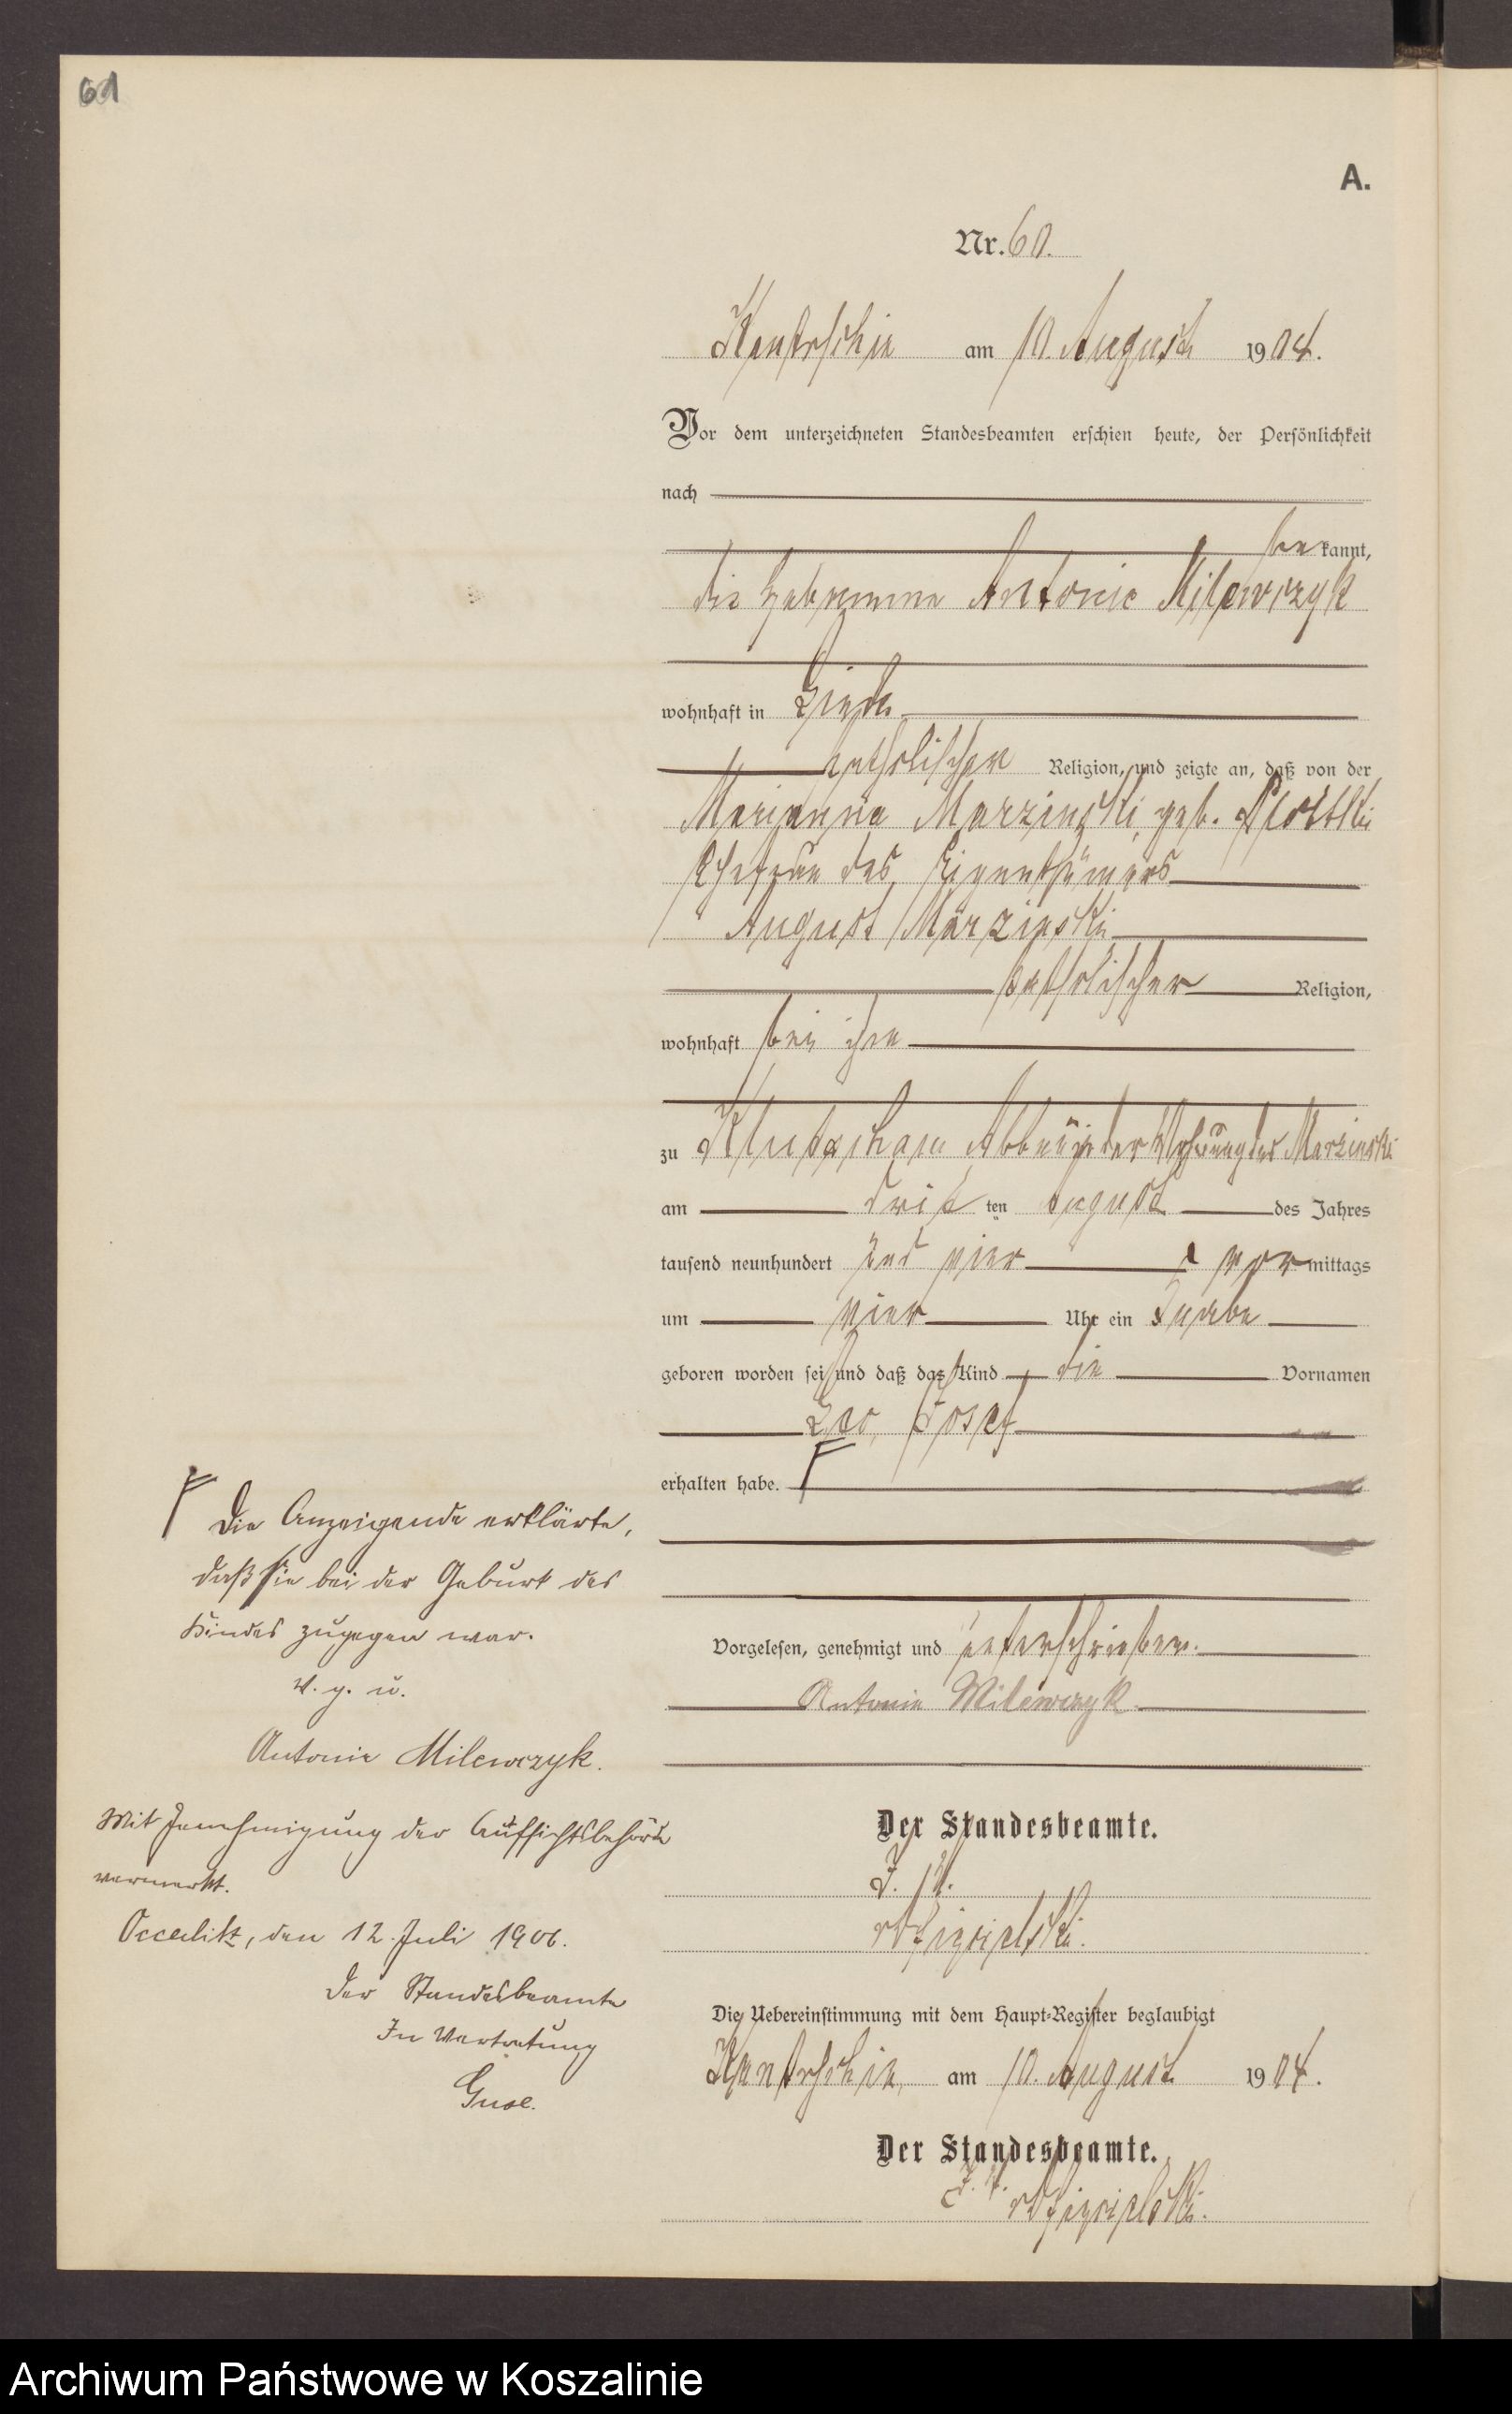 61
A.
Nr. 60.
Kantrschin am 10. August 1904.
Vor dem unterzeichneten Standesbeamten erschien heute, der Persönlichkeit
nach
bekannt,
die Hebamme Antonie Milewczyk
wohnhaft in
katholischen Religion, und zeigte an, daß von der
Marianna Marzinski, geb.
Ehefrau des Eigenthümers
August Marzinski
katholischer Religion,
wohnhaft bei ihm
zu Abbau in der Wohnung des Marzinski
am dritten August des Jahres
tausend neunhundert und vier vormittags
um vier Uhr ein Knabe
geboren worden sei und daß das Kind die Vornamen
Leo Josef
erhalten habe.
Vorgelesen, genehmigt und unterschrieben.
Antonie Milewczyk
Der Standesbeamte.
J. V.
Die Uebereinstimmung mit dem Haupt-Register beglaubigt
Kantrschin am 10. August 1904.
Der Standesbeamte.
J. V.
Die Anzeigende erklärte,
daß sie bei der Geburt des
Kindes zugegen war.
V. g. u.
Antonie Milewczyk.
Mit Genehmigung der Aufsichtsbehörde
vermerkt.
Occalitz, den 12. Juli 1906.
Der Standesbeamte
In Vertretung
Guse.
Archiwum Państwowe w Koszalinie